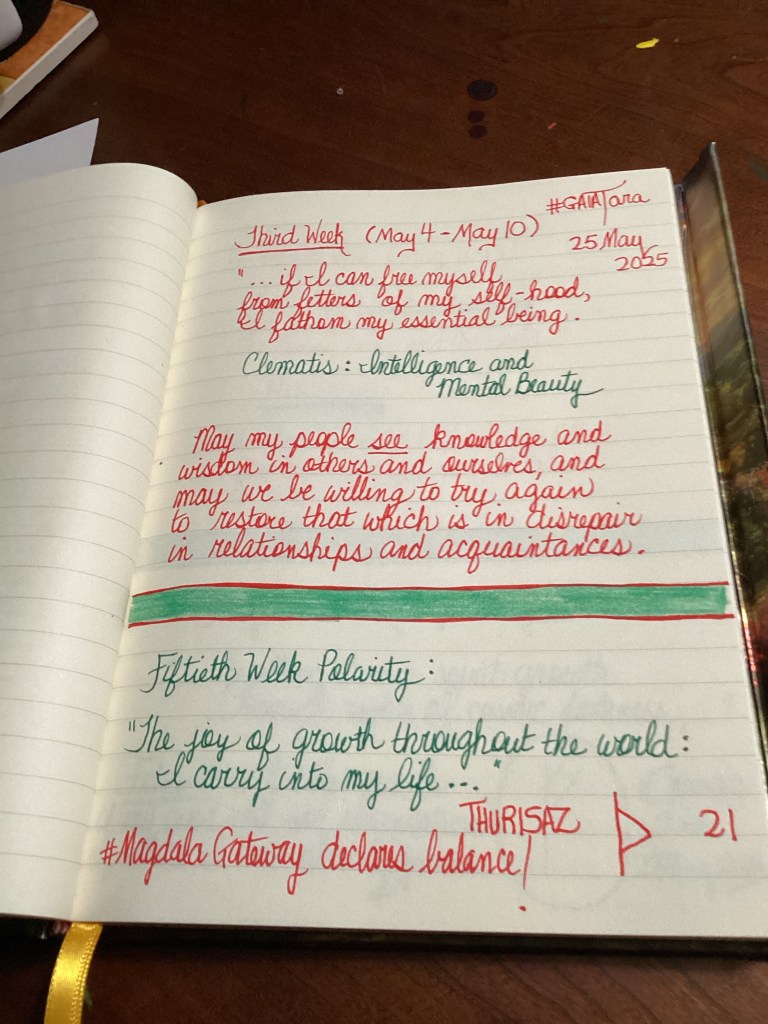 #GAIATara
Third Week (May 4 - May 10)
25 May
2025
"... if I can free myself
from fetters of my self-hood,
I fathom my essential being.
Clematis: Intelligence and
Mental Beauty
May my people see knowledge and
wisdom in others and ourselves, and
may we be willing to try again
to restore that which is in disrepair
in relationships and acquaintances.
Fiftieth Week Polarity:
"The joy of growth throughout the world:
I carry into my life ..."
THURISAZ ᚦ 21
#Magdala Gateway declares balance!